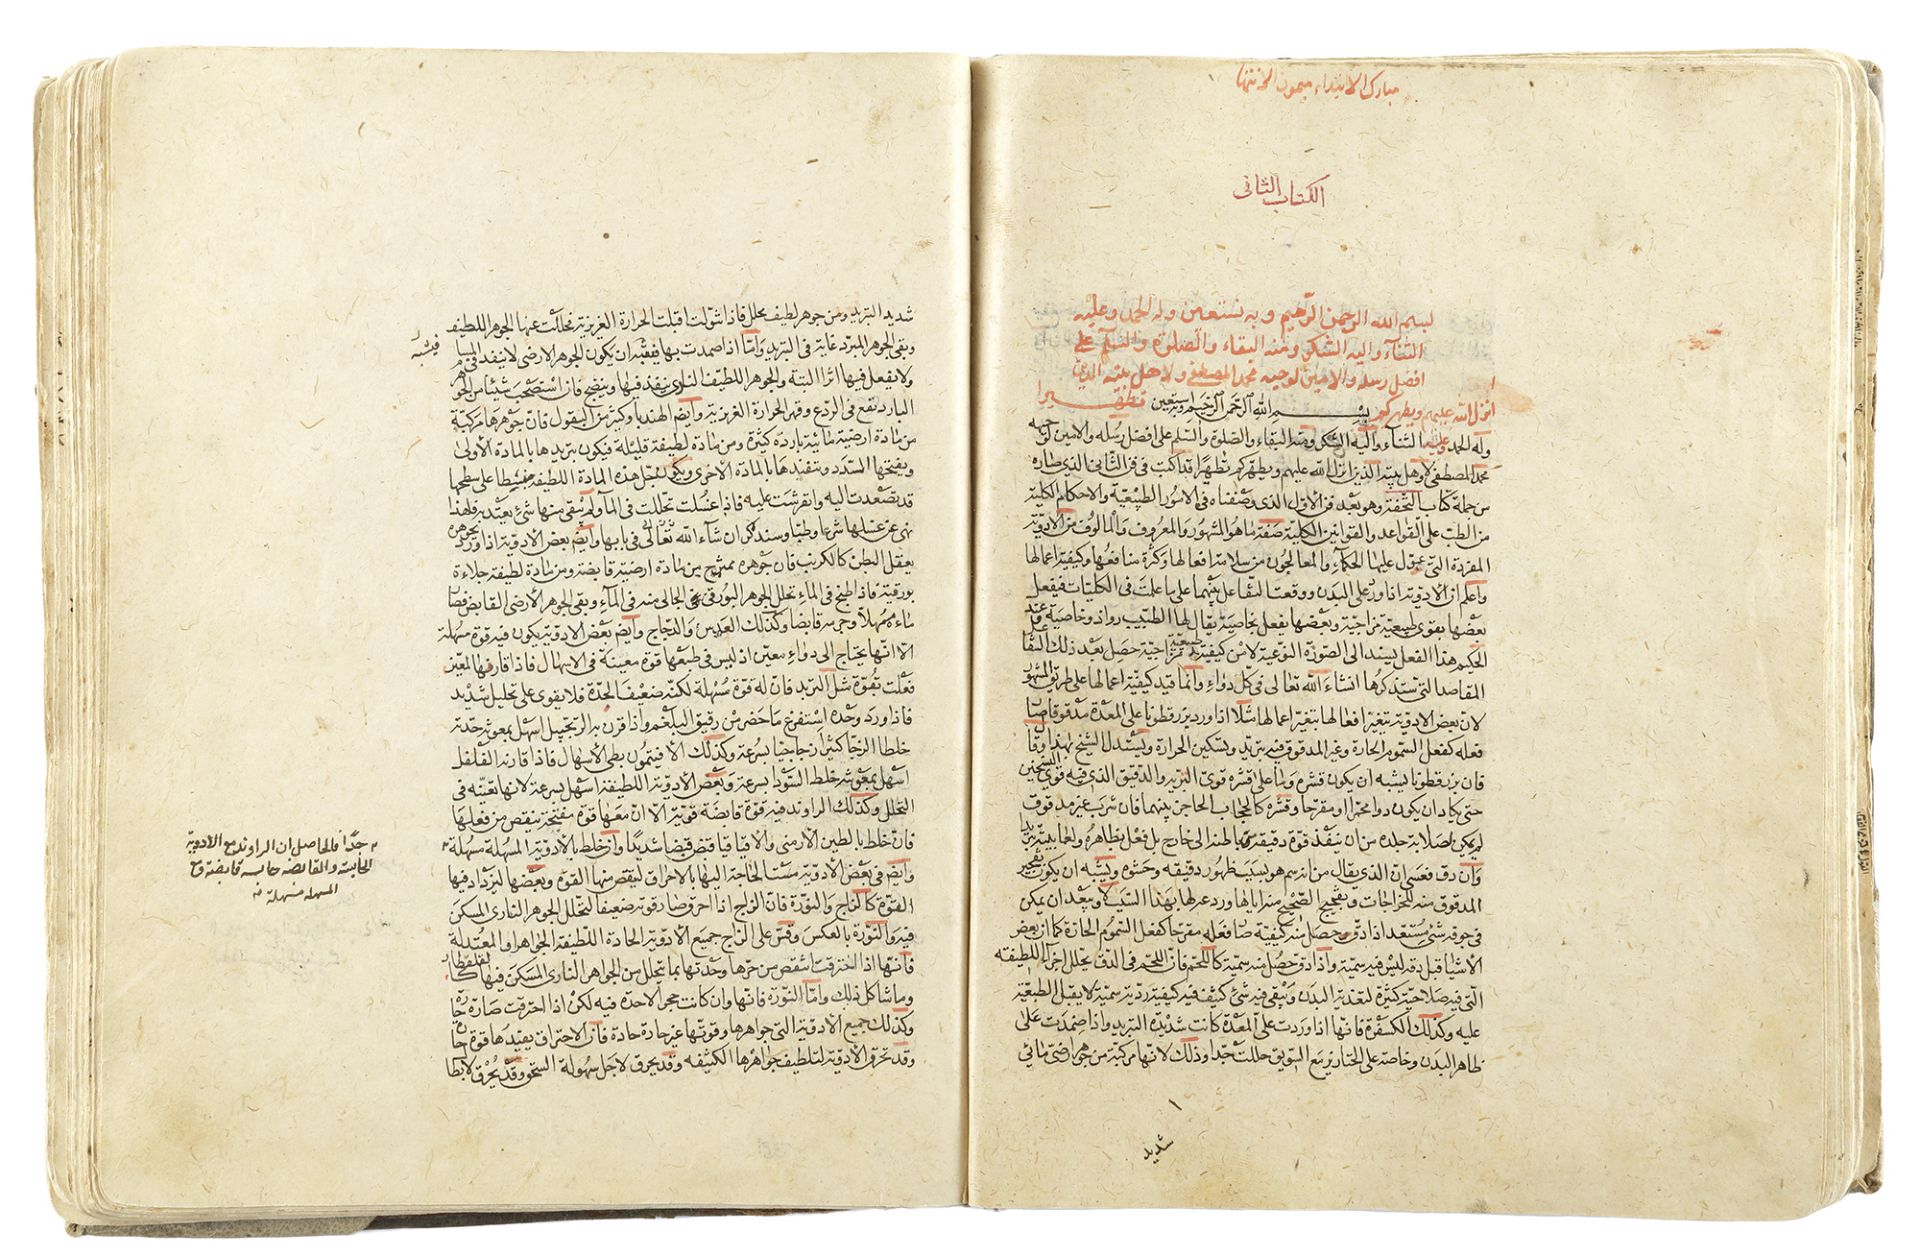 مبارك الابتداء ميمون الانتها
الكتاب الثانى
بسم الله الرحمن الرحيم وبه نستعين وله الحمد وعليه
الثناء واليه الشكر ومنه البقاء والصلوة والسلم على
افضل رسله والامين لوحيه محمد المصطفى ولاهل بيته الذين
انزل الله عليهم ويطهركم تطهيرا بسم الله الرحمن الرحيم وبه نستعين
وله الحمد وعليه الثناء واليه الشكر ومنه البقاء والصلوة والسلم على افضل رسله والامين لوحيه
محمد المصطفى ولاهل بيته الذين انزل الله عليهم ويطهركم تطهيرا قد اكتب فى فن الثانى الذى صاره
من جملة كتاب التحفة وهو بعد فن الاول الذى وصفناه فى الامور الطبيعية والاحكام الكلية
من الطب على القواعد والقوانين الكلية صفة ما هو المشهور والمعروف والمالوف من الادوية
المفردة التى عول عليها الحكماء والمعالجون من سلامة افعالها وكثرة منافعها وكيفية اعمالها
واعلم ان الادوية اذا ورد على البدن ووقعت التفاعل بينهما على ما علمت فى الكليات فيفعل
بعضها بقوى طبيعية مزاجية وبعضها يفعل بخاصية يقال لها الطبيب دواء ذو خاصية وعند
الحكيم هذا الفعل يسند الى الصورة النوعية لا من كيفية مزاجية حصل بعد ذلك التفا
المقاصد التى سنذكرها انشاء الله تعالى فى كل دواء وانما قيد كيفية اعمالها على طريق المشهور
لان بعض الادوية بتغير افعالها بتغير اعمالها مثلا اذا ورد بزرقطونا على المعدة مدقوقا صا
فعله كفعل السموم الحارة وغير المدقوق فيه تبريد وتسكين الحرارة ويستدل الشيخ بهذا وقا
فان بزرقطونا يشبه ان يكون قشره وما على قشره قوى التبريد والدقيق الذى فيه قوى التسخين
حتى يكاد ان يكون دواء محمرا او مقرحا وقشره كالحجاب الحاجز بينهما فان شرب غير مدقوق
لم يمكن لصلابة جلده من ان ينفذ قوة دقيقه باطنه الى خارج بل فعل بظاهره ولعابيته تبريدا
وان دق فعسى ان الذى يقال من انه سم هو بسبب ظهور دقيقه وحشوه ويشبه ان يكون تفجير
المدقوق منه للخراجات وتفجيج الصحيح منه اياها وردعه لها بهذا السبب ولا يبعد ان يمكن
فى جوفه شئ مستعد اذا دق وحصل منه كيفية صا فعله مقرحا كفعل السموم الحارة كما ان بعض
الاشياء قبل دقه ليس فيه سمية واذا دق حصل منه سمية كاللحم فان اللحم فى الدق يحلل اجزاء اللطيفة
التى فيه صلاحية كثيرة لتغذية البدن ويبقى فيه شئ كثيف فيه كيفية ردية سمية لا يقبل الطبيعة
عليه وكذلك الكسفرة فانها اذا وردت على المعدة كانت شديدة التبريد واذا ضمدت على
ظاهر البدن وخاصة على الخنازير مع السويق حللت جدا وذلك لانها مركبة من جوهر ارضى مائى
شديد
شديد التبريد ومن جوهر لطيف يحلل فاذا تنولت اقبلت الحرارة الغريزية فحللت عنها الجوهر اللطيف
وبقى الجوهر المبرد غاية فى التبريد واما اذا ضمدت بها فيشبه ان يكون الجوهر الارضى لا ينفذ فى المسام
فيشبه
ولا يفعل فيها اثرا البتة والجوهر اللطيف النارى ينفذ فيها وينضج فان استصحب شيئا من الجوهر
البارد نفع فى الردع وقهر الحرارة الغريزية وايضا الهندبا وكثير من البقول فان جوهرها مركبة
من مادة ارضية مائية باردة كثيرة ومن مادة لطيفة قليلة فيكون تبريدها بالمادة الاولى
وبفتحها السدد وتنفيذها بالمادة الاخرى ويكون جل هذه المادة اللطيفة منبسطا على سطحها
قد تصعدت اليه وانفرشت عليه فاذا غسلت تحللت فى الماء ولم يبقى منها شئ يعتد به فلهذا
نهى عن غسلها شرعا وطبا وسنذكر ان شاء الله تعالى فى بابها وايضا بعض الادوية اذا ورد
يعقل البطن كالكرنب فان جوهره ممتزج من مادة ارضية قابضة ومن مادة لطيفة جلاءة
بورقية فاذا طبخ فى الماء تحلل الجوهر البورقى الجالى منه فى الماء وبقى الجوهر الارضى القابض فصا
ماءه مسهلا وجرمه قابضا وكذلك العدس والدجاج وايضا بعض الادوية يكون فيه قوة مسهلة
الا انها يحتاج الى دواء معين اذ ليس فى طبعها قوة معينة فى الاسهال فاذا قارنها المعين
فعلت بقوة مثل التربد فان له قوة مسهلة لكنه ضعيف الحدة فلا يقوى على تحليل شديد
فاذا ورد وحده استفرغ ما حضر من رقيق البلغم واذا قرن به الزنجبيل اسهل بمعونة حدته
خلطا لزجا كثيرا زجاجيا بسرعة وكذلك الافتيمون بطى الاسهال فاذا قارنه الفلفل
اسهل بمعونته خلط السودا بسرعة وبعض الادوية اللطيفة اسهل بسرعة لانها تعينه فى
التحلل وكذلك الراوند فيه قوة قابضة قوية الا ان معها قوة مفتحة ينقص من فعلها
فان خلط بالطين الارمنى والاقاقيا قبض قبضا شديدا وان خلط بالادوية المسهلة مسهلة
جدا فالحاصل ان الراوند مع الادوية
الحابسة والقابضة حابسه قابضة ومع
المسهلة مسهلة
وايضا فى بعض الادوية مست الحاجة اليها بالاحراق لينقص منها القوة وبعضها ليزداد فيها
القوة كالزاج والنورة فان الزاج اذا احرق صار قوته ضعيفا لتحلل الجوهر النارى المسكن
فيه والنورة بالعكس وقس على الزاج جميع الادوية الحادة اللطيفة الجواهر او المعتدلة
فانها اذا احترقت انتقص من حرها وحدتها بما يتحلل من الجواهر النارى المسكن فيها كالقلقطار
وما شاكل ذلك واما النورة فانها وان كانت حجرا لا حدة فيه لكن اذا احترقت صارة حارة
وكذلك جميع الادوية التى جواهرها وقوتها غير حارة حادة فان الاحتراق يفيدها قوة حا
وقد تحرق الادوية لتلطيف جواهرها الكثيفه وقد يحرق لاجل سهولة السحق وقد يحرق لابطا